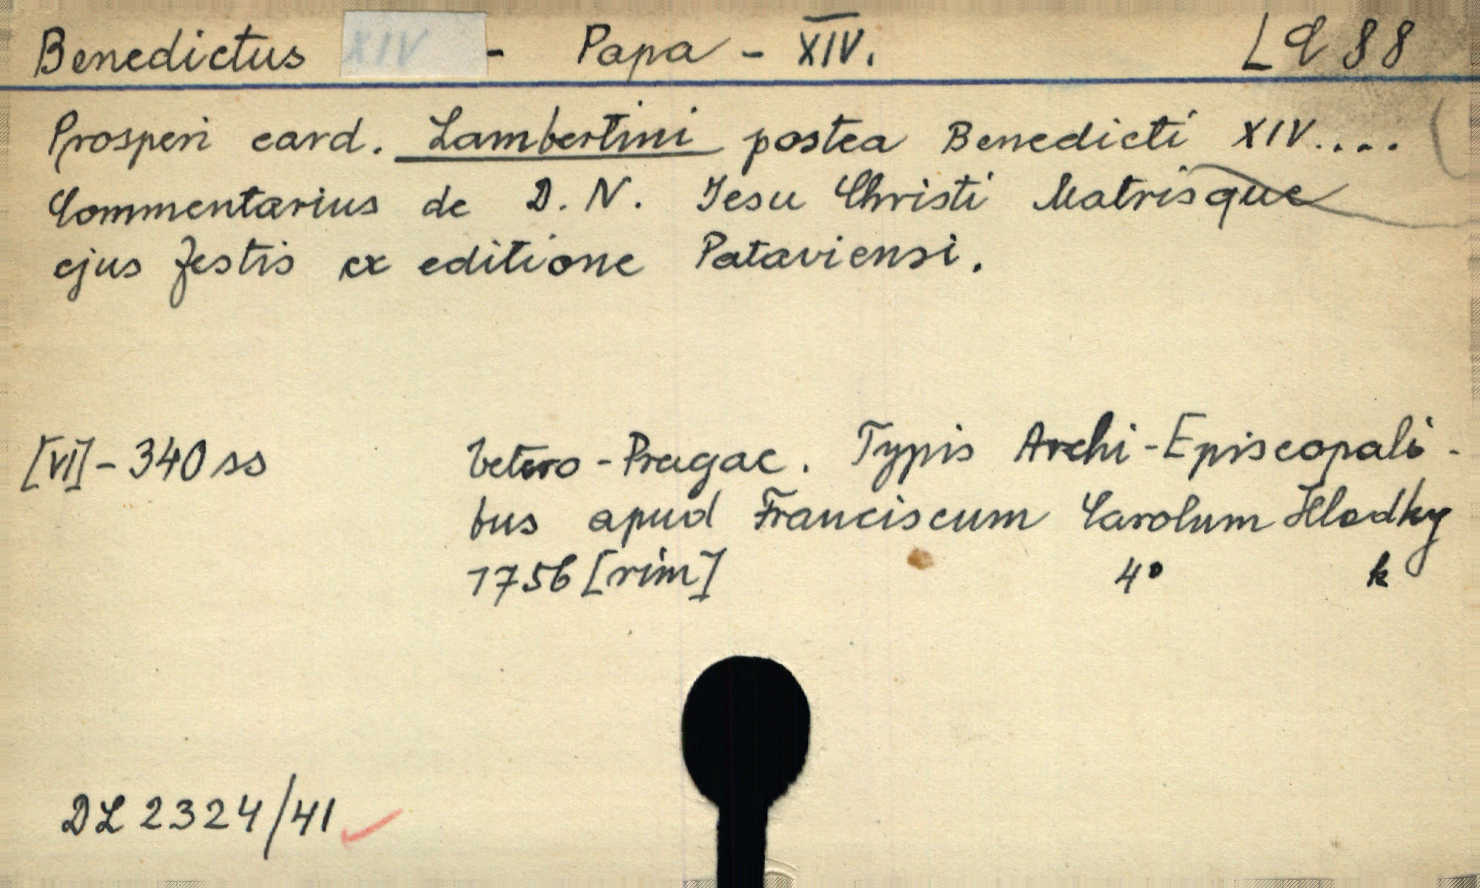 Benedictus XIV - Papa - XIV. L d 88
Prosperi card. Lambertini postea Benedicti XIV....
Commentarius de D. N. Jesu Christi Matrisque
ejus festis ex editione Pataviensi.
[VI] - 340 ss Vetero - Pragae. Typis Archi - Episcopali -
bus apud Franciscum Carolum Hladky
1756 [rim] 4° k
DL 2324/41